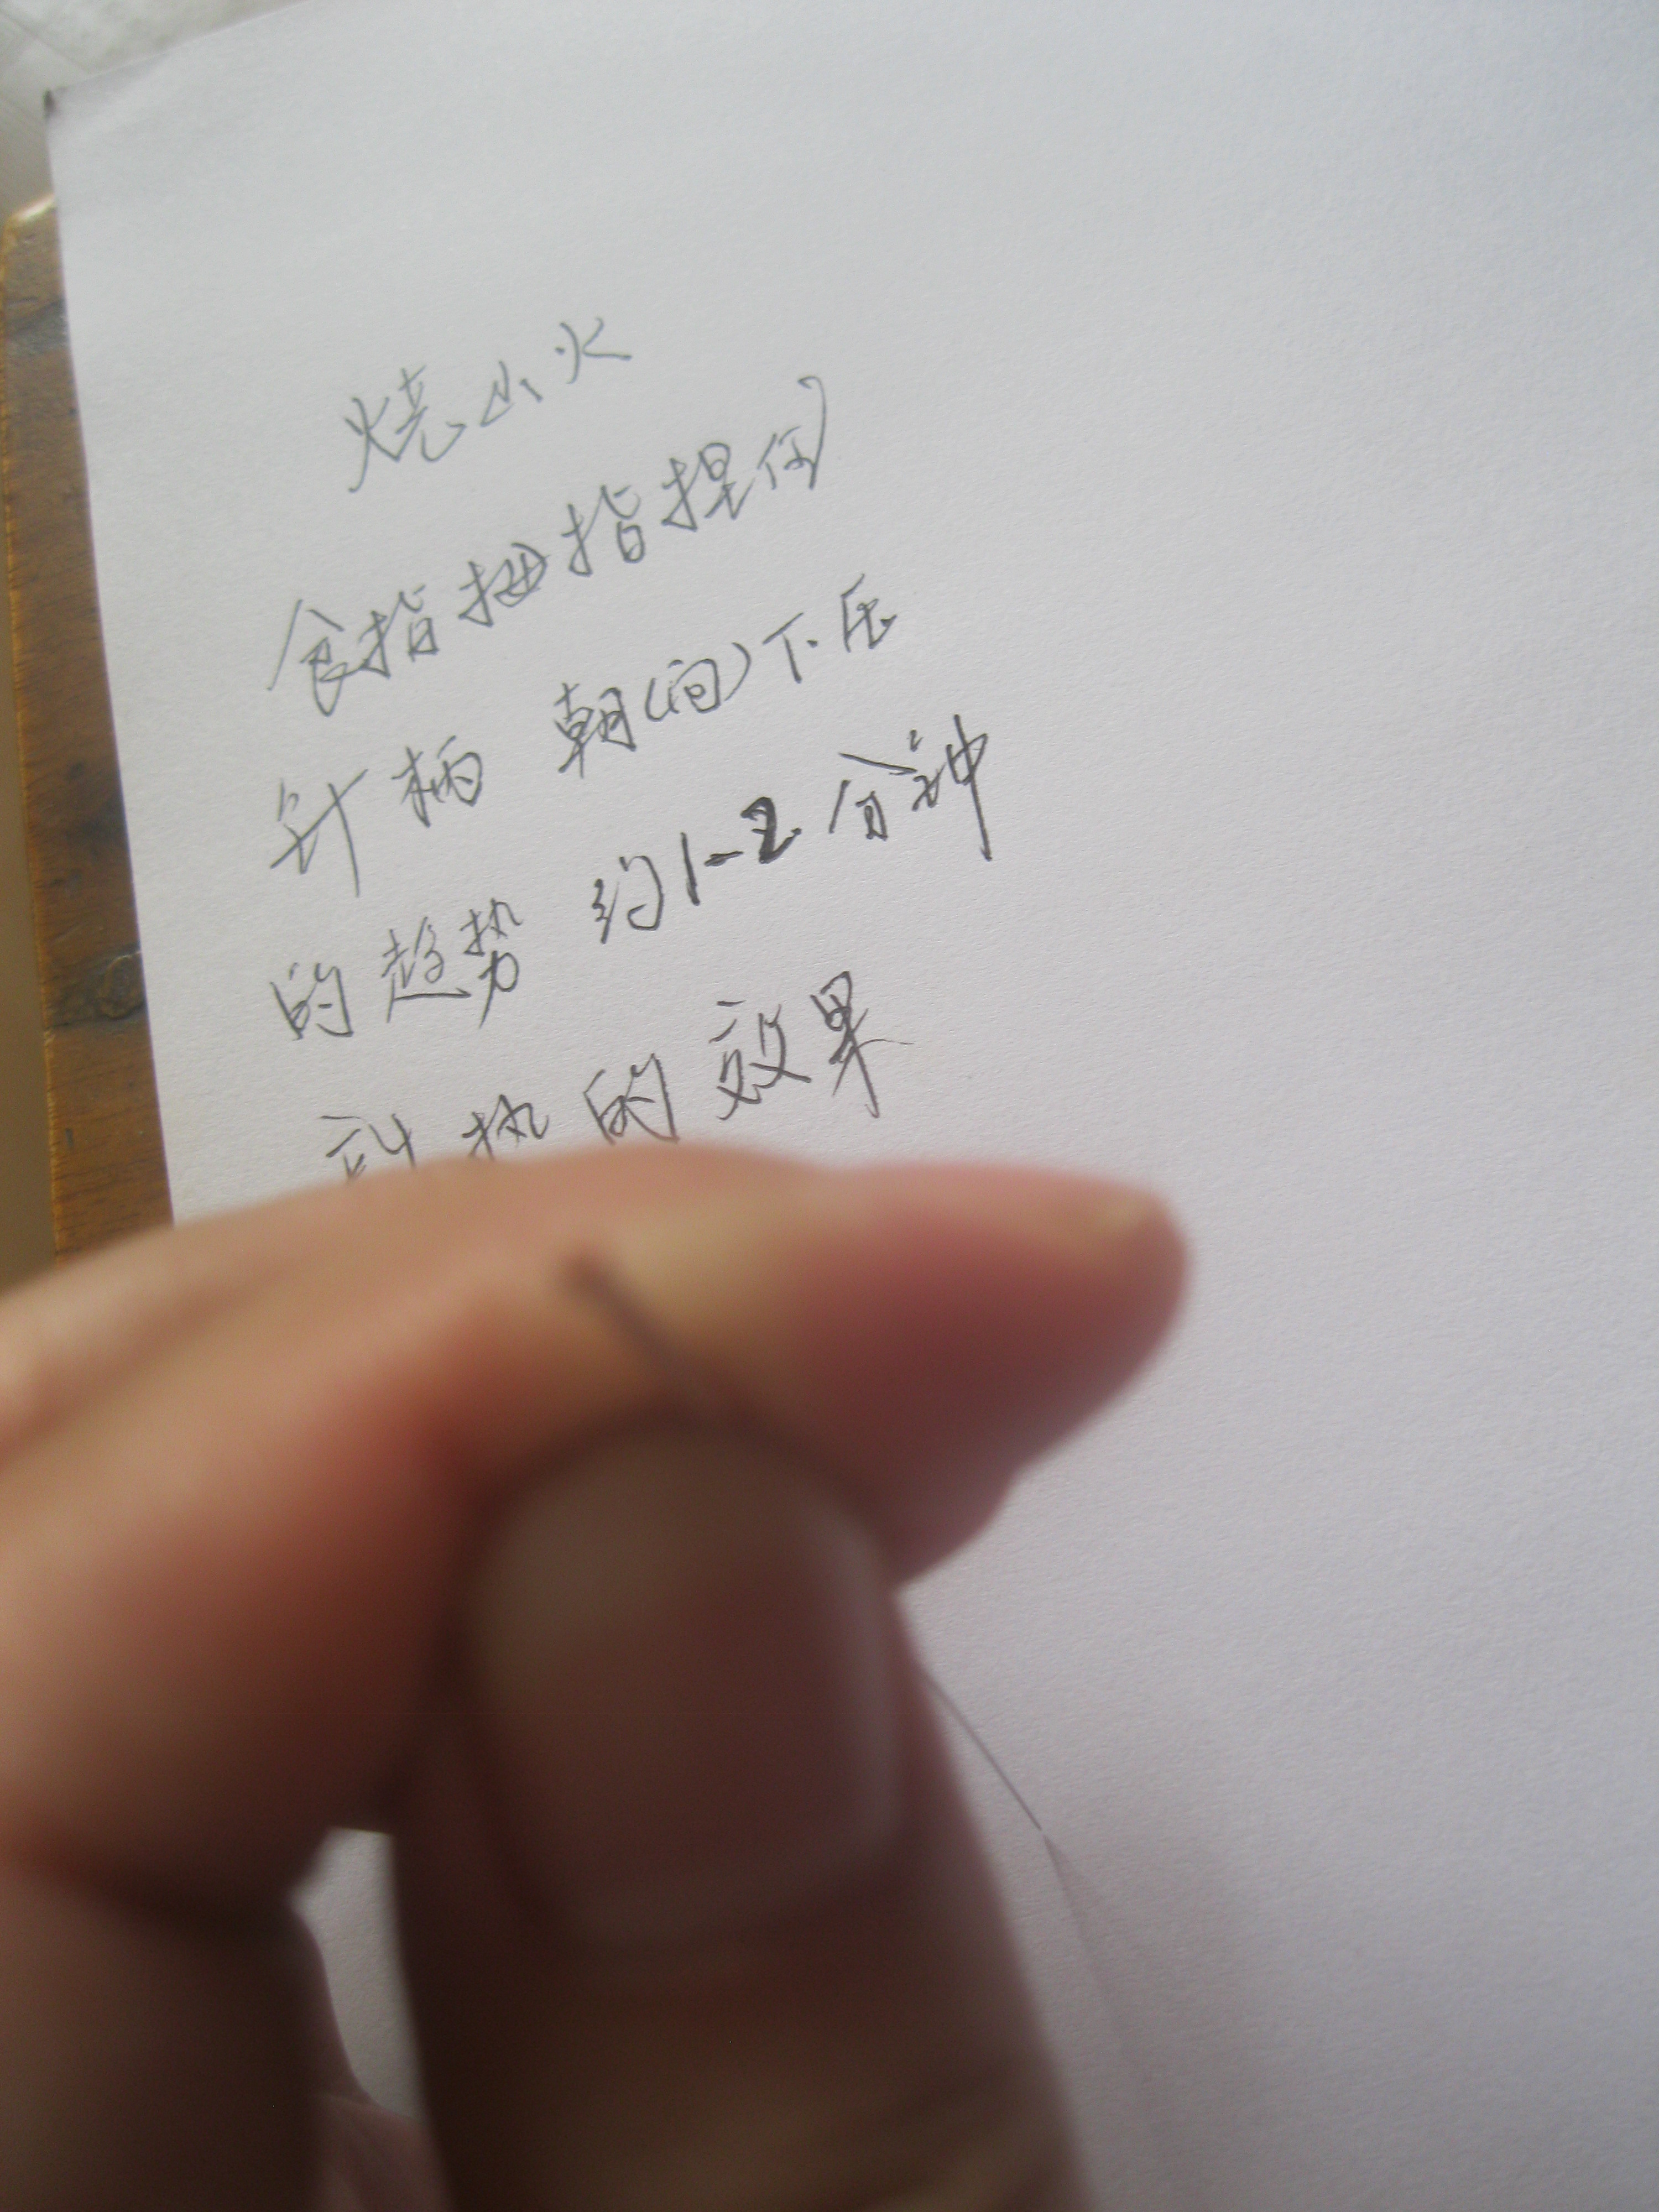 烧山火
食指拇指捏住
针柄 朝(向)下压
的趋势 约1-2分钟
到热的效果